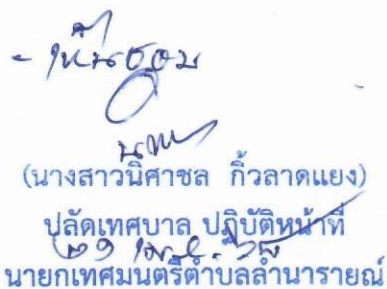 - เห็นชอบ
(นางสาวนิศาชล กิ้วลาดแยง)
ปลัดเทศบาล ปฏิบัติหน้าที่
นายกเทศมนตรีตำบลลำนารายณ์